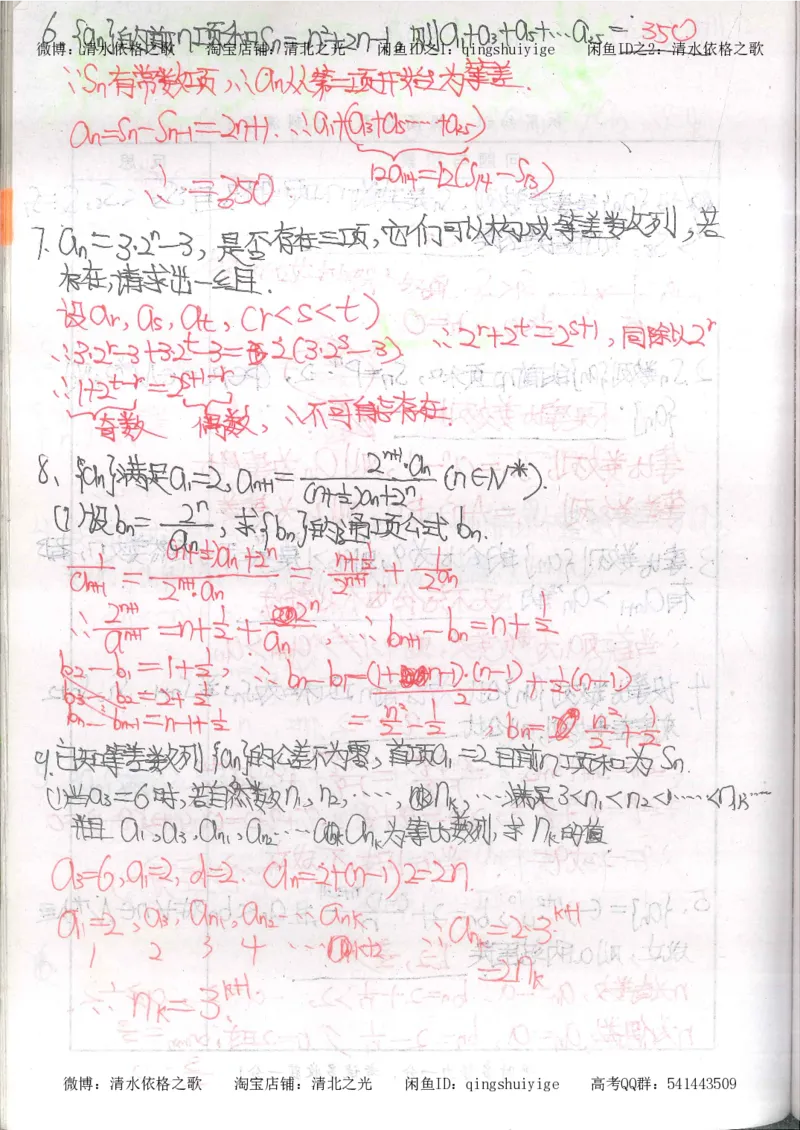 6. {an}的前n项和Sn=n²+2n-1,则a₁+a₃+a₅+…a₂₅=350
微博:清水依格之歌 淘宝店铺:清北之光 闲鱼ID之1:qingshuiyige 闲鱼ID之2:清水依格之歌
∵Sn有常数项,∴an从第二项开始为等差.
an=Sn-Sn-1=2n+1. ∴a₁+(a₃+a₅…+a₂₅)
12a₁₄=12(S₁₄-S₁₃)
∴=350
7. an=3·2ⁿ-3,是否存在三项,它们可以构成等差数列,若
存在,请求出一组.
设ar,as,at,(r<s<t)
∴3·2^r-3+3·2^t-3=2(3·2^s-3) ∴2^r+2^t=2^(s+1),同除以2^r
∴1+2^(t-r)=2^(s+1-r)
奇数 偶数,∴不可能存在.
8、{an}满足a₁=2,an+1=2^(n+1)·an/((n+½)an+2ⁿ) (n∈N*).
(1)设bn=2ⁿ/an,求{bn}的通项公式bn.
1/an+1=((n+½)an+2ⁿ)/(2^(n+1)·an)=(n+½)/2^(n+1)+1/(2an)
∴2^(n+1)/an+1=n+½+2ⁿ/an,∴bn+1-bn=n+½
b₂-b₁=1+½, ∴bn-b₁=(1+n-1)·(n-1)/2+½(n-1)
b₃-b₂=2+½
bn-bn-1=n-1+½ =n²/2-½ ∴bn=n²/2+½
9.已知等差数列{an}的公差不为零,首项a₁=2且前n项和为Sn.
(1)当a₃=6时,若自然数n₁,n₂,……,nk,…满足3<n₁<n₂<……<nk…
并且a₁,a₃,an₁,an₂……ank为等比数列,求nk的值
a₃=6,a₁=2,d=2. an=2+(n-1)2=2n.
a₁=2,a₃,an₁,an₂…ank ∴ank=2·3^(k+1)
1 2 3 4 … k+2 =2nk
∴nk=3^(k+1).
微博:清水依格之歌 淘宝店铺:清北之光 闲鱼ID:qingshuiyige 高考QQ群:541443509